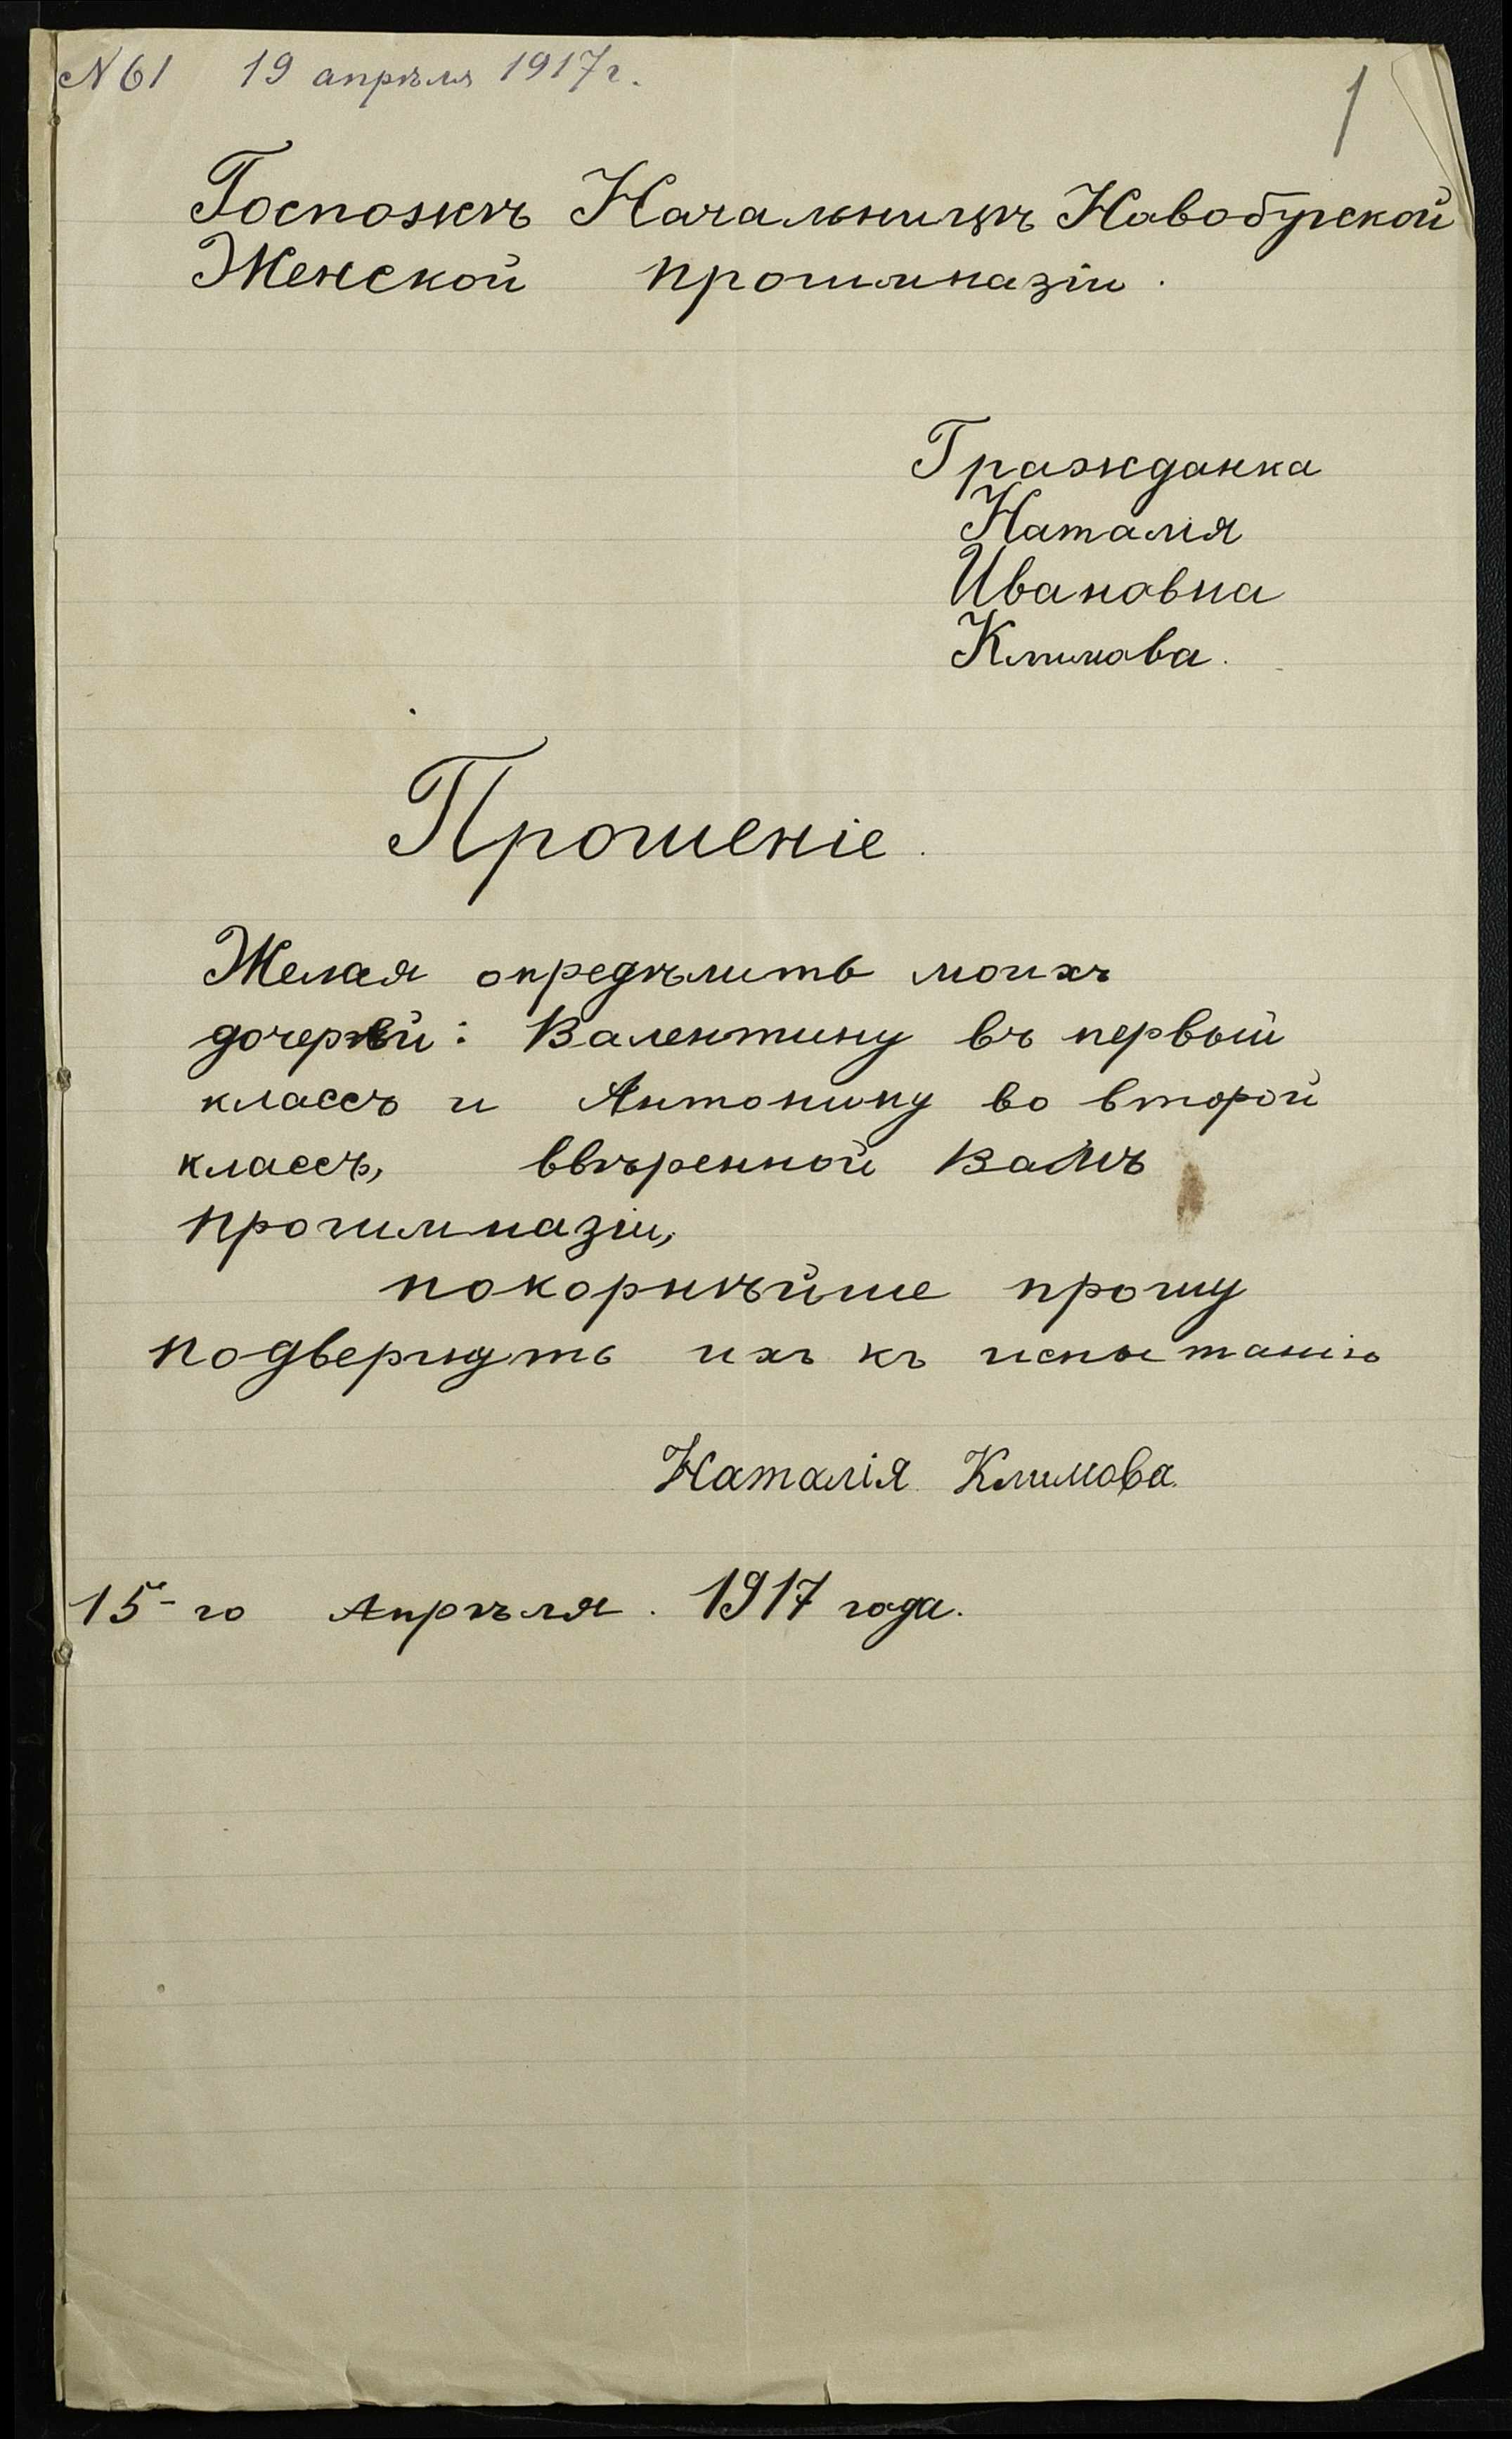 N 61 19 апрѣля 1917 г.
1
Госпожѣ Начальницѣ Новобугской
Женской прогимназіи.
Гражданка
Наталія
Ивановна
Климова.
Прошеніе.
Желая опредѣлить моихъ
дочерей: Валентину въ первый
классъ и Антонину во второй
классъ, ввѣренной Вамъ
прогимназіи,
покорнѣйше прошу
подвергнуть ихъ къ испытанію
Наталія Климова.
15-го Апрѣля. 1917 года.